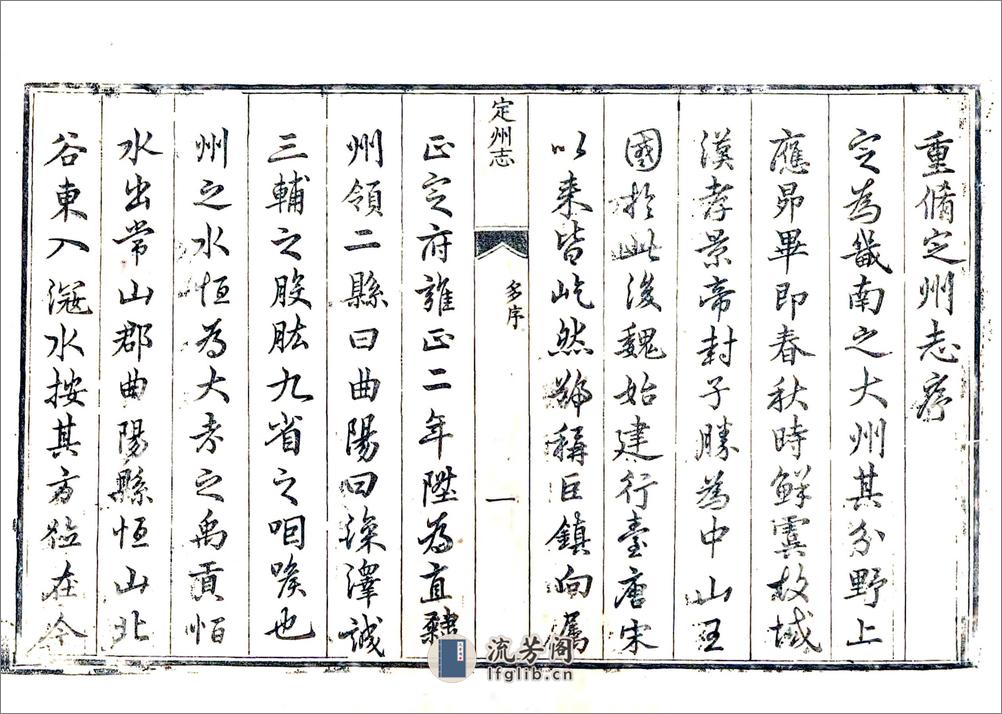 重脩定州志序
定為畿南之大州其分野上
應昴畢即春秋時鮮虞故域
漢孝景帝封子勝為中山王
國於此後魏始建行臺唐宋
以来皆屹然號稱巨鎮向屬
定州志
多序
一
正定府雍正二年陞為直隸
州領二縣曰曲陽曰深澤誠
三輔之股肱九省之咽喉也
州之水恒為大考之禹貢恒
水出常山郡曲陽縣恒山北
谷東入滱水按其方位在今
流芳阁
lfglib.cn